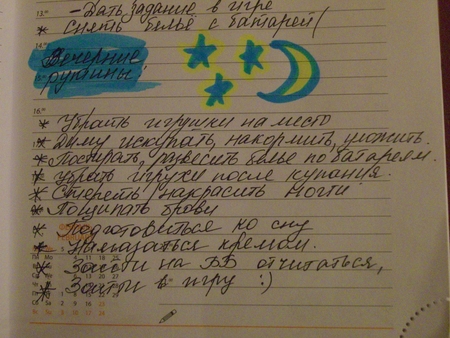 - Дать задание в игре
* Снять белье с батарей(
Вечерние
рутины:
* Убрать игрушки на место
* Диму искупать, накормить, уложить.
* Постирать, развесить белье по батареям.
* Убрать игрухи после купания.
* Стереть накрасить ногти
* Пощипать брови
* Подготовиться ко сну
* Намазаться кремом.
* Зайти на ББ отчитаться,
* Зайти в игру :)